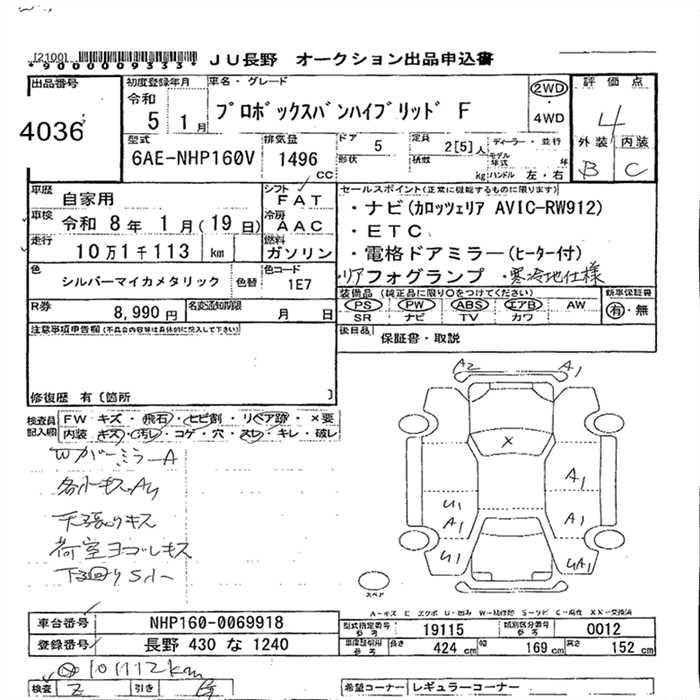 [2100]
*9000009333*
JU長野 オークション出品申込書
出品番号
4036
初度登録年月
令和
5 1月
車名・グレード
プロボックスバンハイブリッド F
2WD
4WD
評価点
4
外装 内装
B C
型式
6AE-NHP160V
排気量
1496
CC
ドア
5
形状
定員
2[5]人
積数
kg
ディーラー・並行
モデル年式 年
ハンドル 左・右
車歴
自家用
シフト
FAT
車検
令和 8年 1月(19日)
冷房
AAC
走行
10万1千113 km
燃料
ガソリン
色
シルバーマイカメタリック
色替
色コード
1E7
R券
8,990円
名変通知期限
月 日
セールスポイント(正常に機能するものに限ります)
・ナビ(カロッツェリア AVIC-RW912)
・ETC
・電格ドアミラー(ヒーター付)
・リアフォグランプ ・寒冷地仕様
装備品(純正品に限り○をつけてください)
PS PW ABS エアB AW
SR ナビ TV カワ
新車保証書
有・無
後日品
保証書・取説
注意事項申告欄(不具合内容等は具体的に記入して下さい)
修復歴 有〔箇所 〕
検査員記入欄
FW キズ・飛石・ヒビ割・リペア跡・×要
内装 キズ・汚レ・コゲ・穴・スレ・キレ・破レ
WカバーミラーA
各小キズAU
天張りキズ
荷室ヨゴレキズ
下回りS小
A2 A1
×
A1
U1
A1
A1
U1
UA1
スペア
A-キズ E エクボ U-凹み W-補修跡 S-サビ C-腐蝕 XX-交換済
車台番号
NHP160-0069918
登録番号
長野 430 な 1240
型式指定番号
参考
19115
類別区分番号
参考
0012
車庫証明用
参考
長さ
424 cm
幅
169 cm
高さ
152 cm
101112km
検査
引き
希望コーナー
レギュラーコーナー